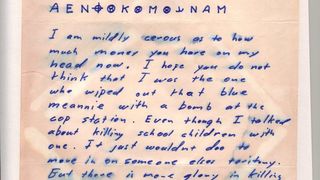 I am mildly cerous as to how
much money you have on my
head now. I hope you do not
think that I was the one
who wiped out that blue
meannie with a bomb at the
cop station. Even though I talked
about killing school children with
one. It just wouldnt doo to
move in on someone elses teritory.
But there is more glory in killing